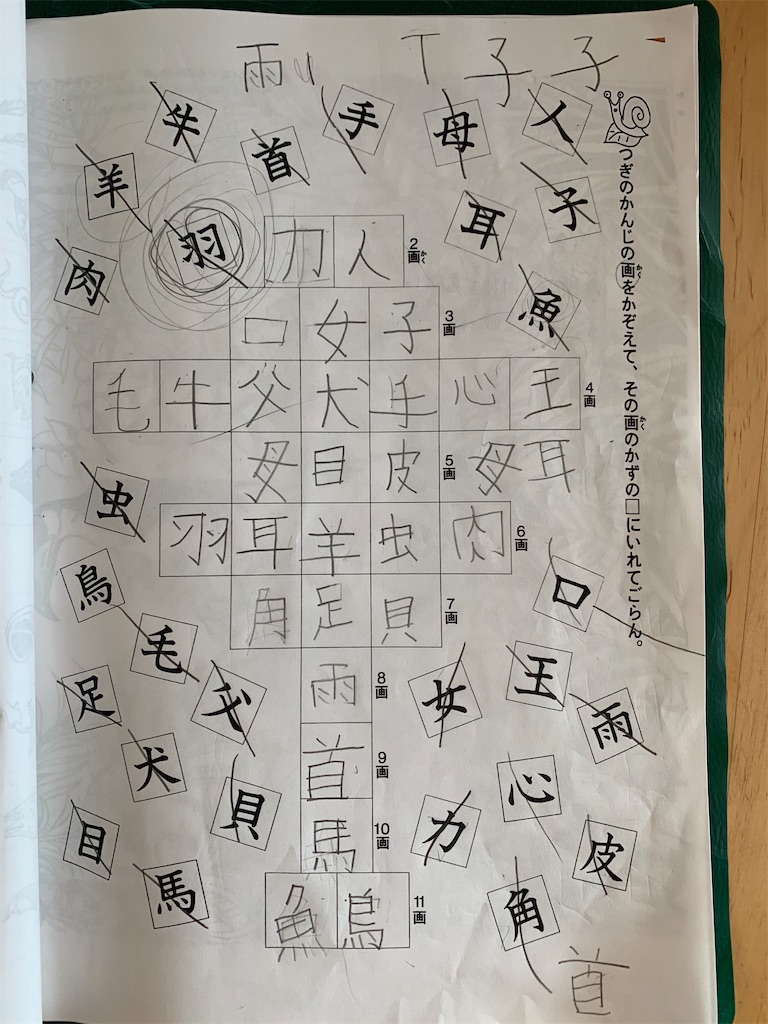 つぎのかんじの画をかぞえて、その画のかずの□にいれてごらん。
かく
かく
雨
T
子
子
牛
首
手
母
人
羊
羽
耳
子
肉
魚
力人
2画
かく
口女子
3画
毛牛父犬手心王
4画
母目皮
5画
母耳
羽耳羊虫肉
6画
角足貝
7画
雨
8画
首
9画
馬
10画
魚鳥
11画
虫
鳥
毛
足
父
犬
貝
目
馬
口
王
女
雨
心
力
皮
角
首